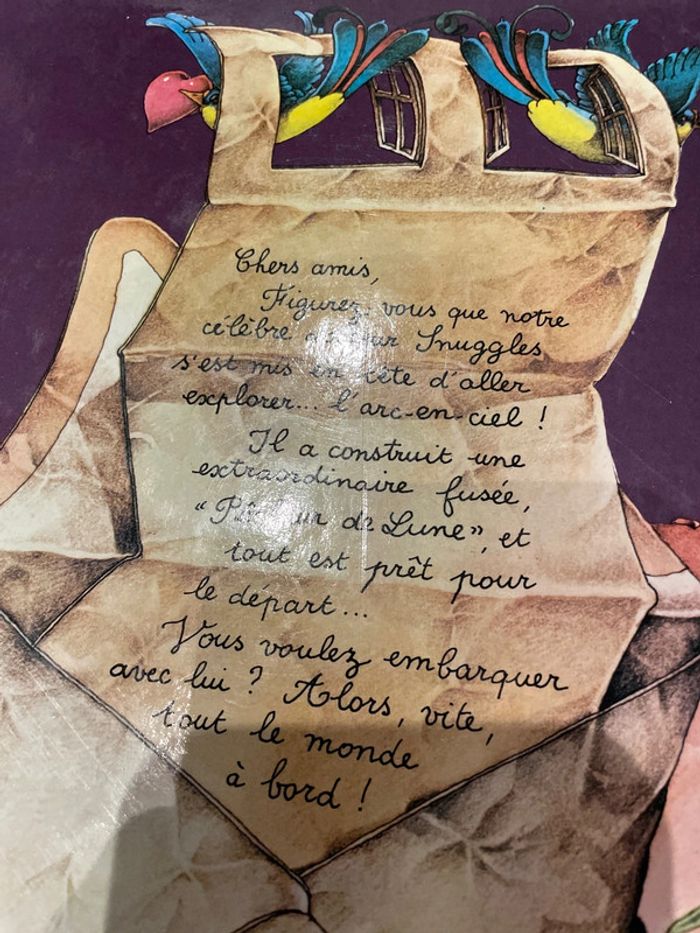 Chers amis,
Figurez-vous que notre
célèbre Snuggles
s'est mis en tête d'aller
explorer... l'arc-en-ciel !
Il a construit une
extraordinaire fusée,
" de Lune", et
tout est prêt pour
le départ...
Vous voulez embarquer
avec lui ? Alors, vite,
tout le monde
à bord !